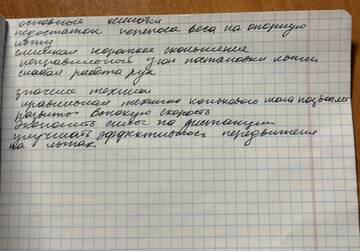 основные ошибки
недостаток переноса веса на опорную
ногу
слишком короткое скольжение
неправильный угол постановки лыжи
слабая работа рук
значение техники
правильная техника конькового хода позволяет
развить высокую скорость
экономить силы на дистанции
улучшать эффективность передвижения
на лыжах